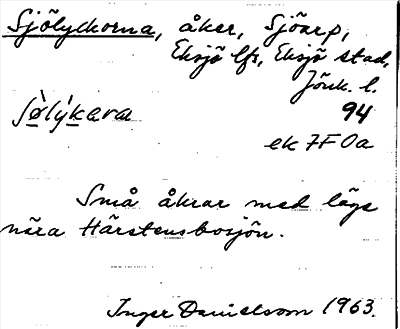 Sjölyckorna, åker, Sjöarp,
Eksjö lfs, Eksjö stad,
Jönk. l.
94
sø̀lýkara
ek 7F0a
Små åkrar med läge
nära Hårstensbosjön.
Inger Danielsson 1963.